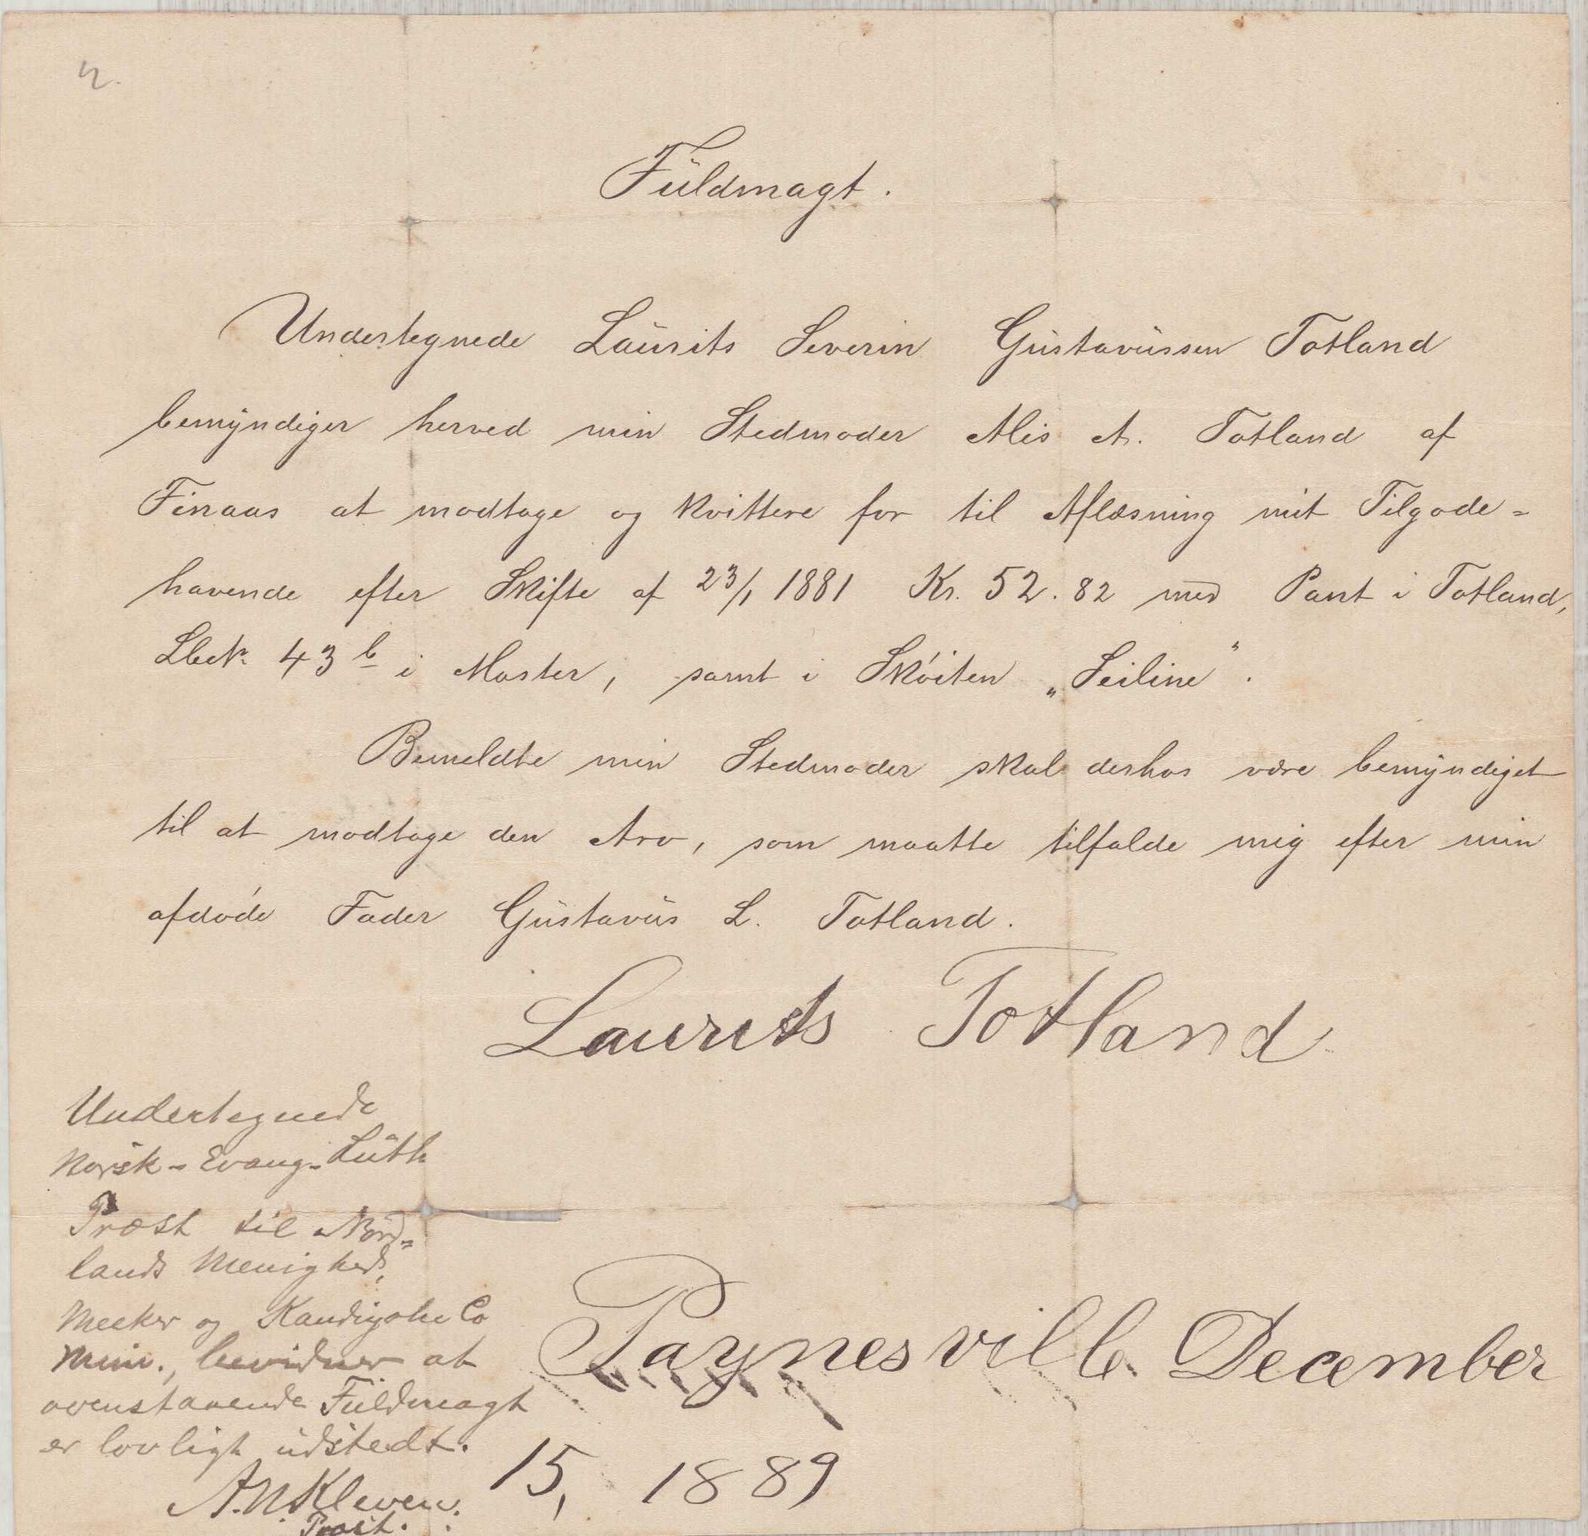 2.
Fuldmagt.
Undertegnede Laurits Severin Gustavussen Totland
bemyndiger herved min Stedmoder Alis A. Totland af
Finaas at modtage og kvittere for til Aflæsning mit Tilgode=
havende efter Skifte af 23/1 1881 Kr. 52.82 med Pant i Totland,
Lbn. 43 b i Moster, samt i Skøiten „Seiline".
Bemeldte min Stedmoder skal derhos være bemyndiget
til at modtage den Arv, som maatte tilfalde mig efter min
afdøde Fader Gustavus L. Totland.
Laurits Totland
Undertegnede
Norsk-Evang-Luth
Præst til Nord=
lands Menighed,
Meeker og Kandiyohi Co
Minn., bevidner at
ovenstaaende Fuldmagt
er lovligt udstedt.
A.N. Kleven.
Præst.
Paynesville December
15, 1889